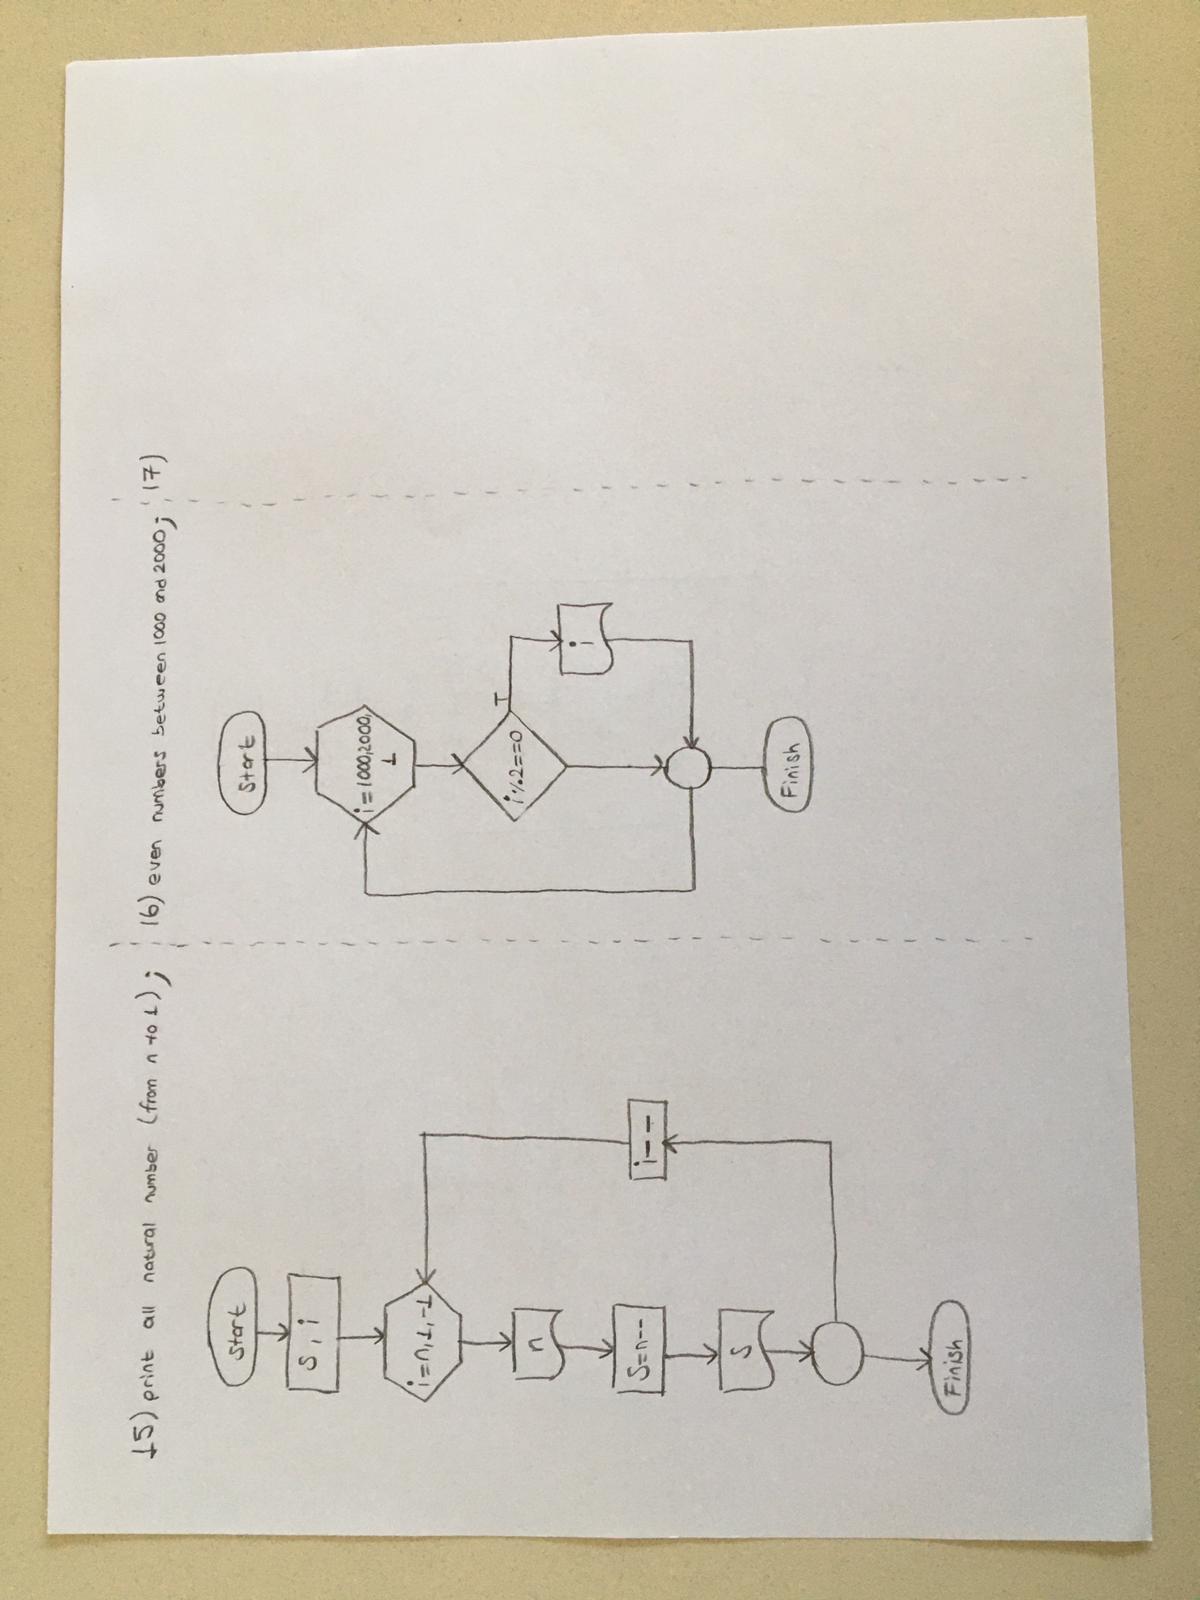 15) print all natural number (from n to 1);
Start
S, i
i=n,1,-1
n
S=n--
i--
S
Finish
16) even numbers between 1000 and 2000;
Start
i=1000,2000,
1
i%2==0
T
i
Finish
17)